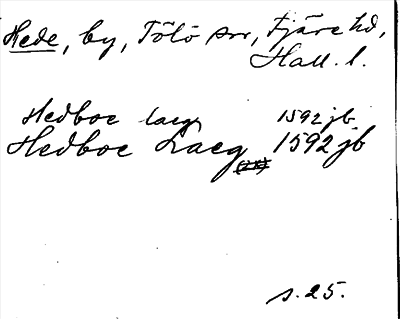 Hede, by, Tölö sn, Fjäre hd,
Hall. l.
Hedboe laeg 1592 jb
Hedboe Laeg 1592 jb
s. 25.